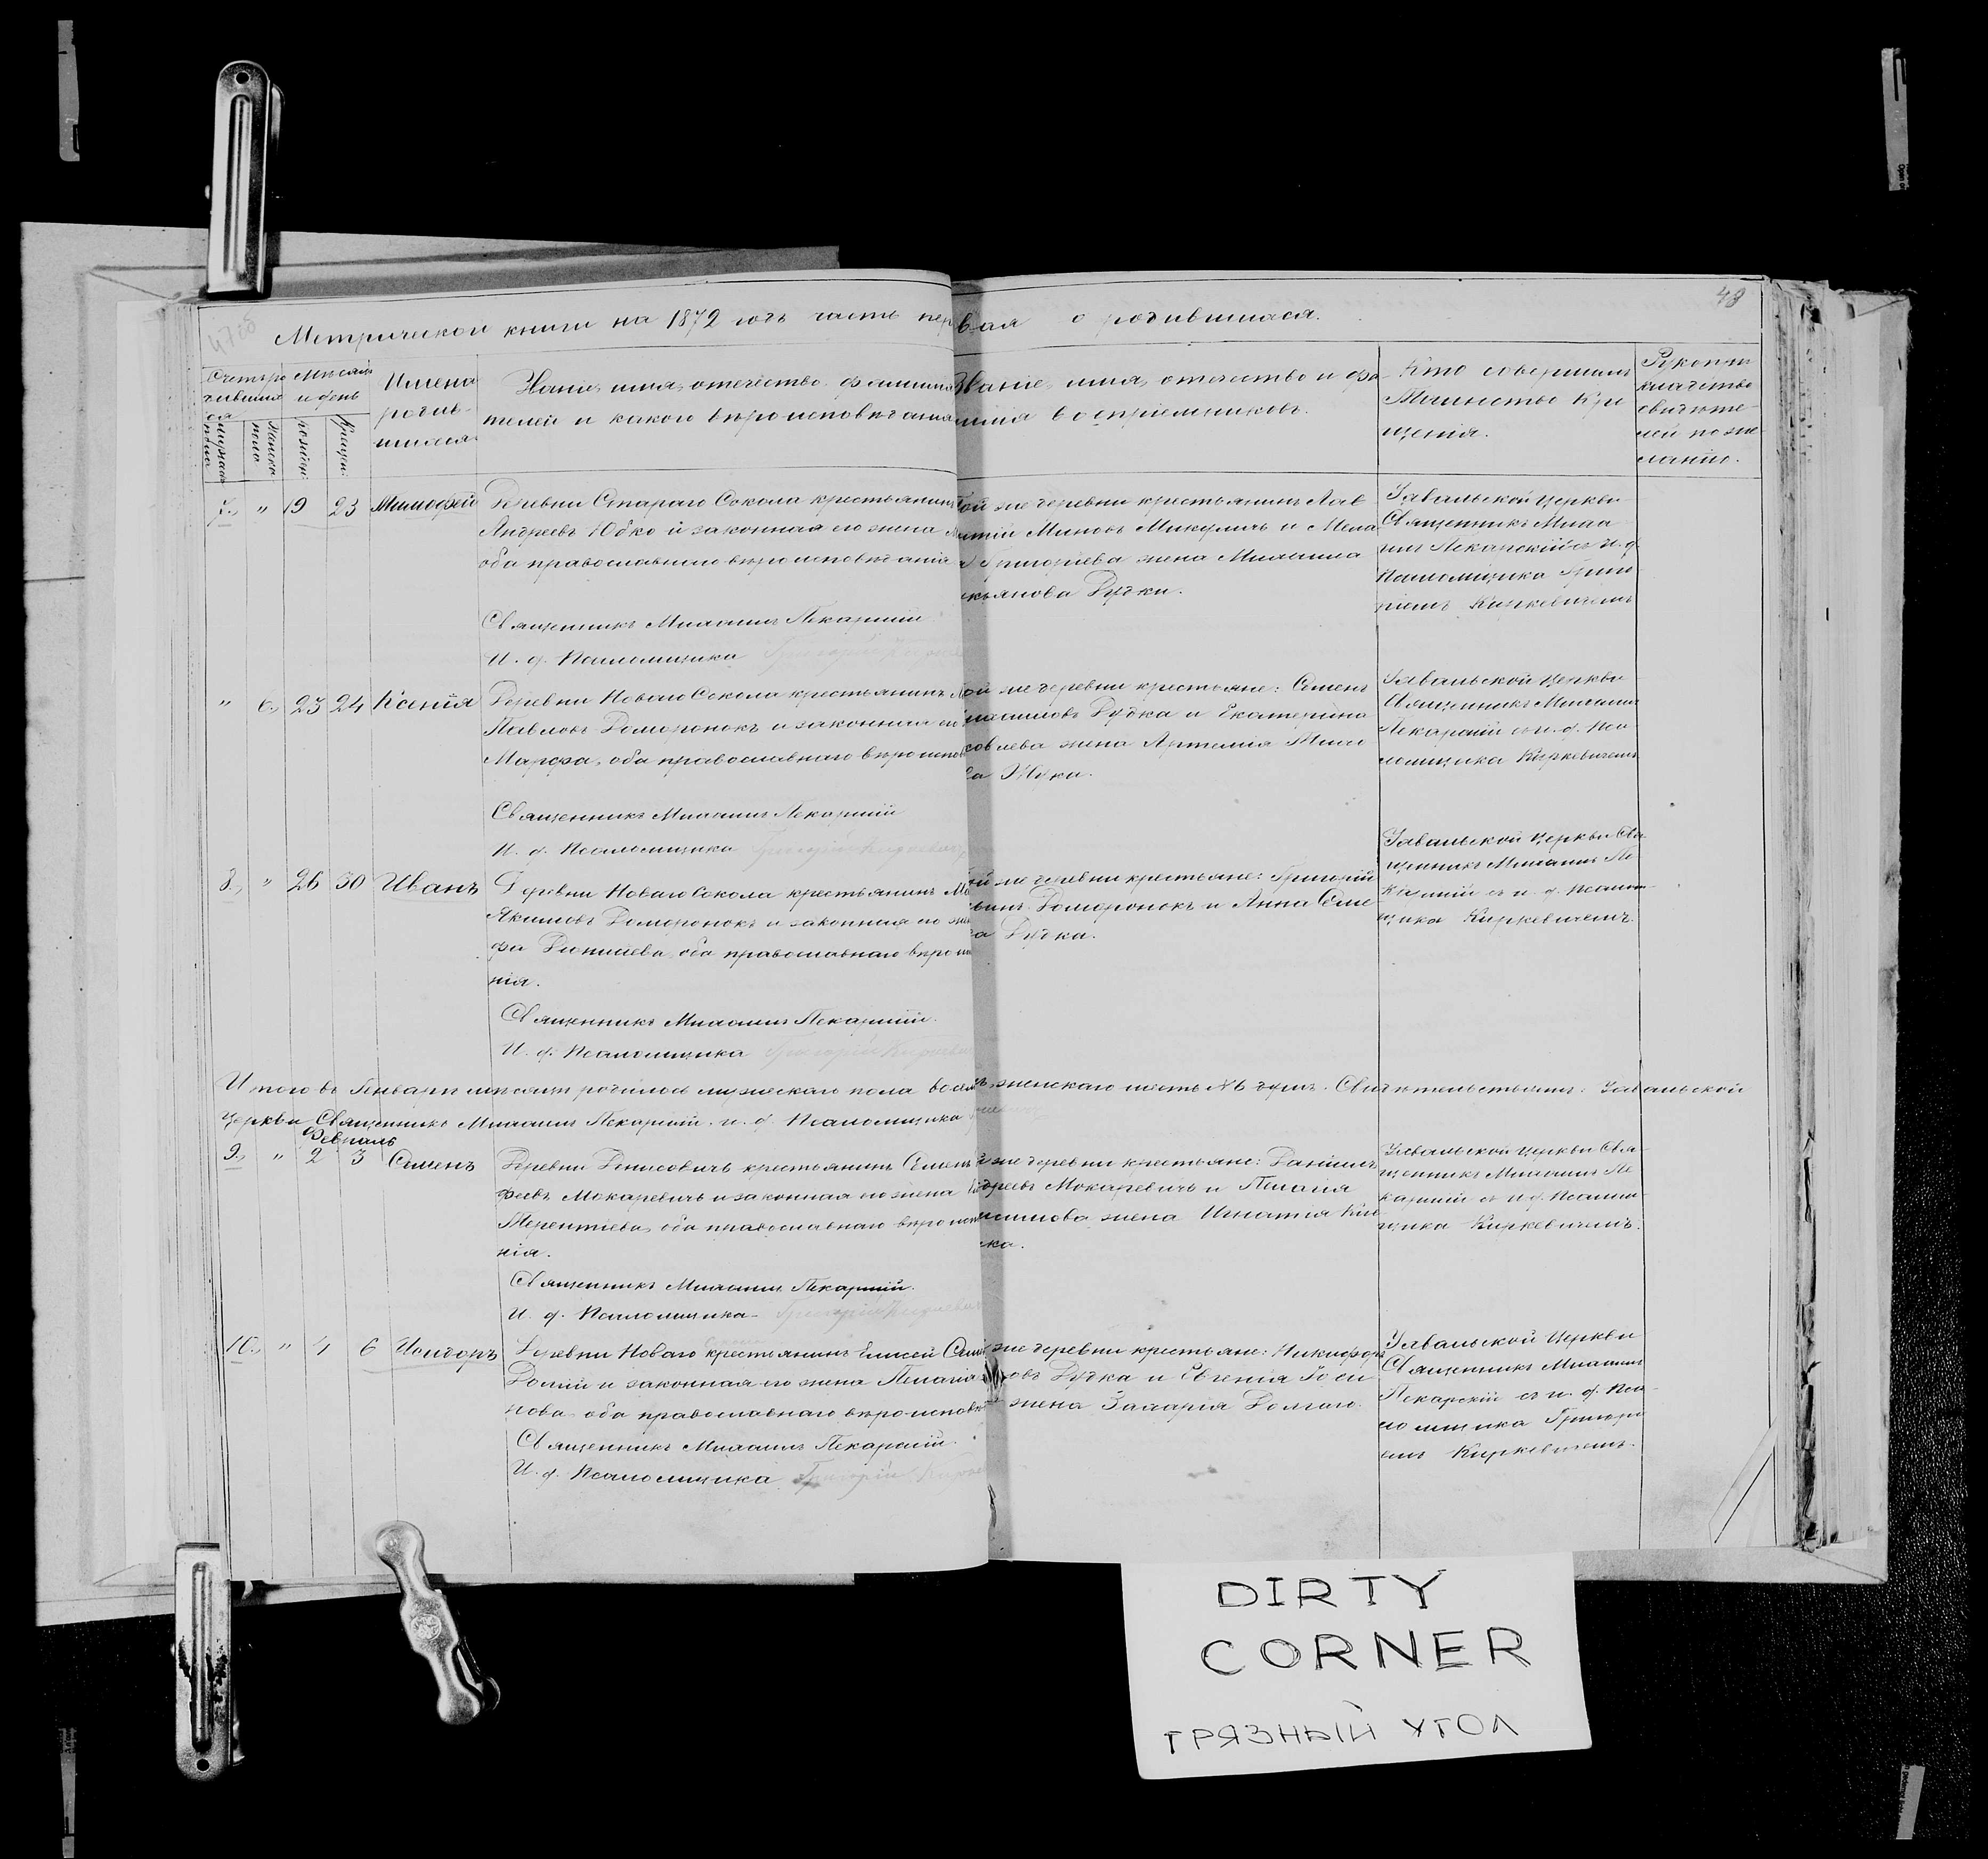 47об
48
Метрической книги на 1872 годъ часть первая о родившихся.
Счетъ родившихся
Мѣсяцъ и день
Имена родившихся
Званіе, имя, отчество, фамилія
телей и какого вѣроисповѣданія
Званіе, имя, отчество и фа-
милія воспріемниковъ.
Кто совершалъ
Таинство Кре
щенія.
Рукопри
кладство
свидѣте-
лей по же-
ланію.
мужеска пола
женска пола
рожден:
Крещен:
7. " 19 23 Тимофей
Деревни Стараго Сокола крестьянинъ
Андреевъ Юдко и законная его жена
оба православнаго вѣроисповѣданія
Священникъ Михаилъ Пекарскій
И. д. Псаломщика Григорій
той же деревни крестьянинъ Лав
рентій Миновъ Микуличъ и Мела
Григоріева жена Михаила
Дудки.
Завальской Церкви
Священникъ Миха
илъ Пекарскій съ и. д.
Псаломщика Григо
ріемъ Киркевичемъ
" 6. 23 24 Ксенія
Деревни Новаго Сокола крестьянинъ
Павловъ Доморонокъ и законная его
Марфа, оба православнаго вѣроиспов
Священникъ Михаилъ Пекарскій
И. д. Псаломщика Григорій Киркевич
той же деревни крестьяне: Семенъ
Михаиловъ Дудка и Екатерина
Яковлева жена Артемія
Жука.
Завальской Церкви
Священникъ Михаилъ
Пекарскій съ и. д. Пса
ломщика Киркевичемъ
8. " 26 30 Иванъ
Деревни Новаго Сокола крестьянинъ
Якимовъ Доморонокъ и законная его жен
оба православнаго вѣро
нія.
Священникъ Михаилъ Пекарскій.
И. д. Псаломщика Григорій Киркевич
той же деревни крестьяне: Григорій
Доморонокъ и Анна Семе
ва Дудка.
Завальской Церкви Свя
щенникъ Михаилъ Пе
карскій съ и. д. Псалом-
щика Киркевичемъ.
Итого въ Генварѣ мѣсяцѣ родилось мужескаго пола восемь женскаго шесть № 6 душъ. Свидѣтельствуемъ: Завальской
Церкви Священникъ Михаилъ Пекарскій. и. д. Псаломщика
Февраль
9. " 2 3 Семенъ
Деревни Денисовичъ крестьянинъ Семенъ
феевъ Мокаревичъ и законная его жена
Терентіева, оба православнаго вѣроиспов
нія.
Священникъ Михаилъ Пекарскій.
И. д. Псаломщика Григорій Киркевич
же деревни крестьяне: Даніилъ
Андреевъ Мокаревичъ и Пелагія
жена Игнатія
Завальской Церкви Свя-
щенникъ Михаилъ Пе
карскій съ и. д. Псалом-
щика Киркевичемъ.
10. " 4 6 Исидоръ
Деревни Новаго крестьянинъ Елисей Семе
Долгій и законная его жена Пелагія
нова, оба православнаго вѣроисповѣ
Священникъ Михаилъ Пекарскій.
И. д. Псаломщика Григорій
же деревни крестьяне: Никифоръ
овъ Дудка и Евгенія
жена Захарія Долгаго.
Завальской Церкви
Священникъ Михаилъ
Пекарскій съ и. д. Пса-
ломщика Григорі
емъ Киркевичемъ.
DIRTY
CORNER
ГРЯЗНЫЙ УГОЛ